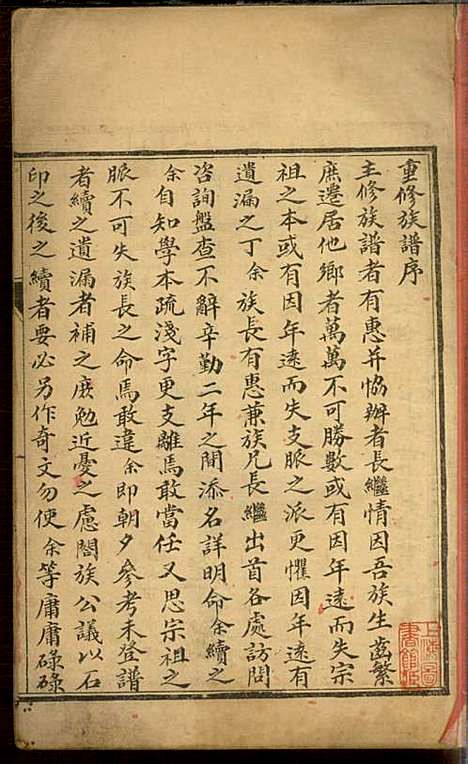 重修族譜序
主修族譜者有惠并恊辦者長繼情因吾族生齒繁
庶遷居他鄉者萬萬不可勝數或有因年遠而失宗
祖之本或有因年遠而失支脈之派更懼因年遠有
遺漏之丁余族長有惠兼族兄長繼出首各處訪問
咨詢盤查不辭辛勤二年之間添名詳明命余續之
余自知學本疏淺字更支離焉敢當任又思宗祖之
脈不可失族長之命焉敢違余即朝夕參考未登譜
者續之遺漏者補之庶勉近憂之慮闔族公議以石
印之後之續者要必另作奇文勿使余等庸庸碌碌
上海圖書館藏